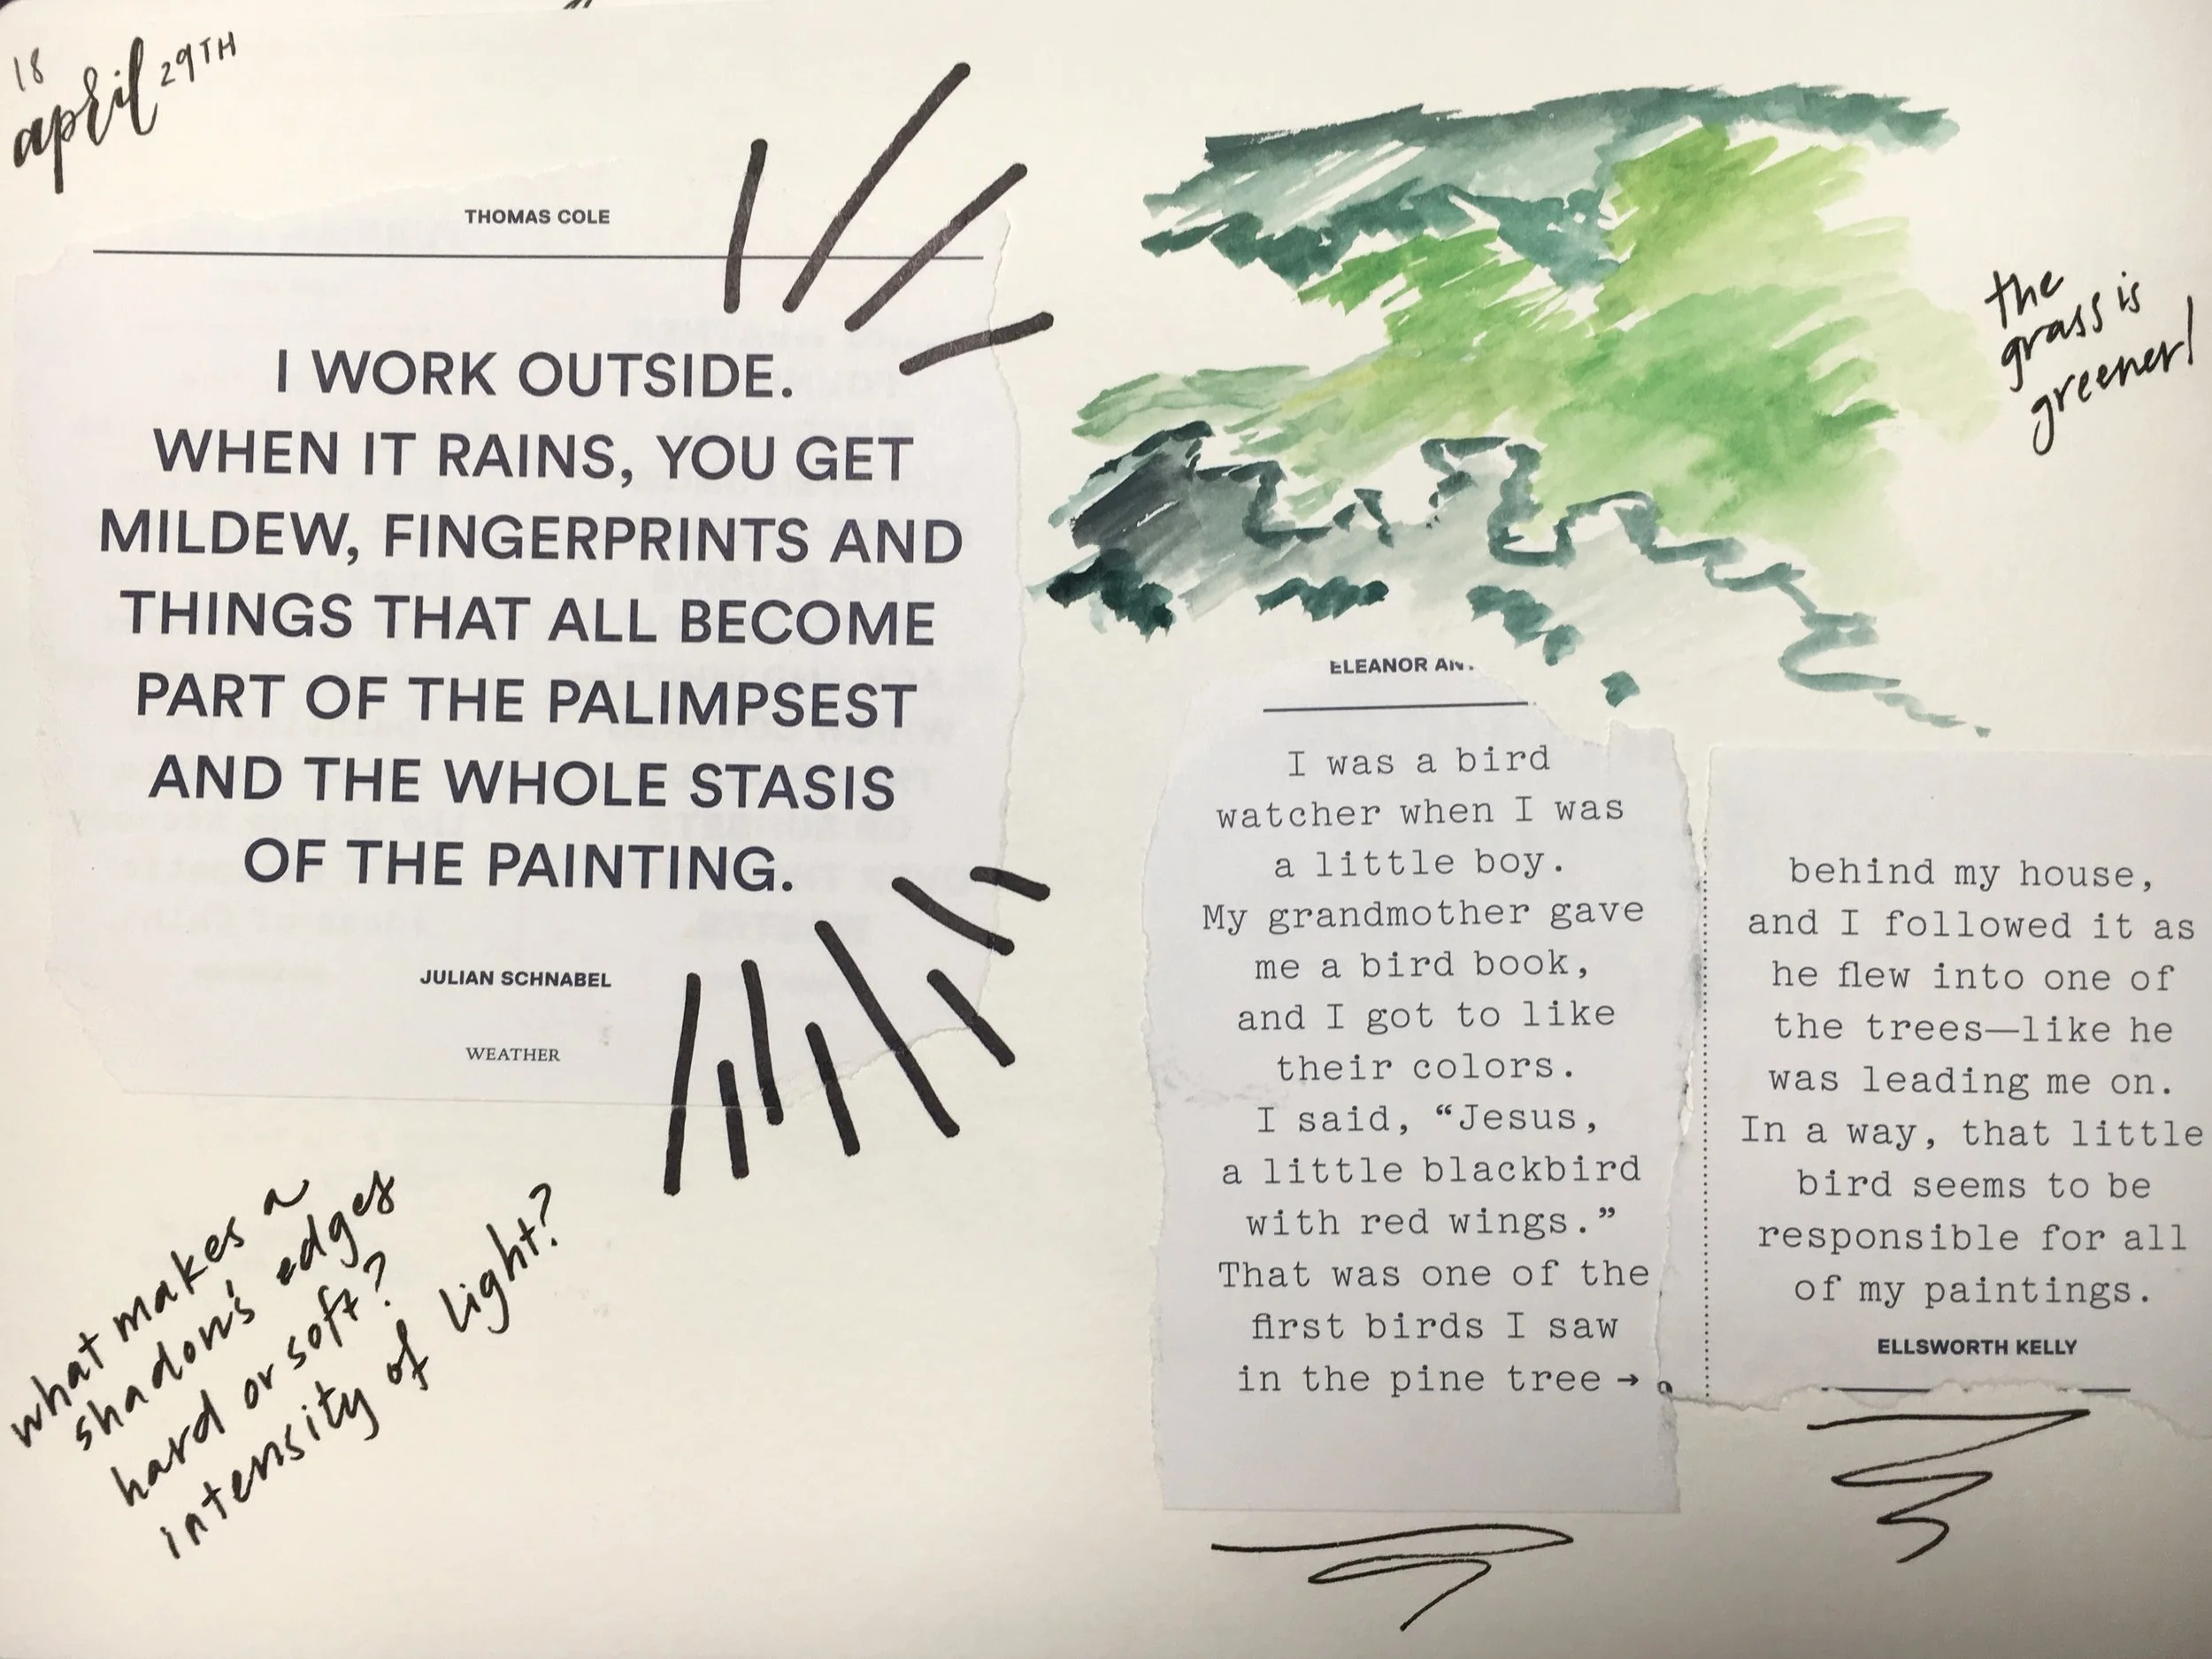 18
april 29TH
THOMAS COLE
I WORK OUTSIDE.
WHEN IT RAINS, YOU GET
MILDEW, FINGERPRINTS AND
THINGS THAT ALL BECOME
PART OF THE PALIMPSEST
AND THE WHOLE STASIS
OF THE PAINTING.
JULIAN SCHNABEL
WEATHER
what makes a
shadow's edges
hard or soft?
intensity of light?
the
grass is
greener!
ELEANOR
I was a bird
watcher when I was
a little boy.
My grandmother gave
me a bird book,
and I got to like
their colors.
I said, “Jesus,
a little blackbird
with red wings.”
That was one of the
first birds I saw
in the pine tree →
behind my house,
and I followed it as
he flew into one of
the trees—like he
was leading me on.
In a way, that little
bird seems to be
responsible for all
of my paintings.
ELLSWORTH KELLY